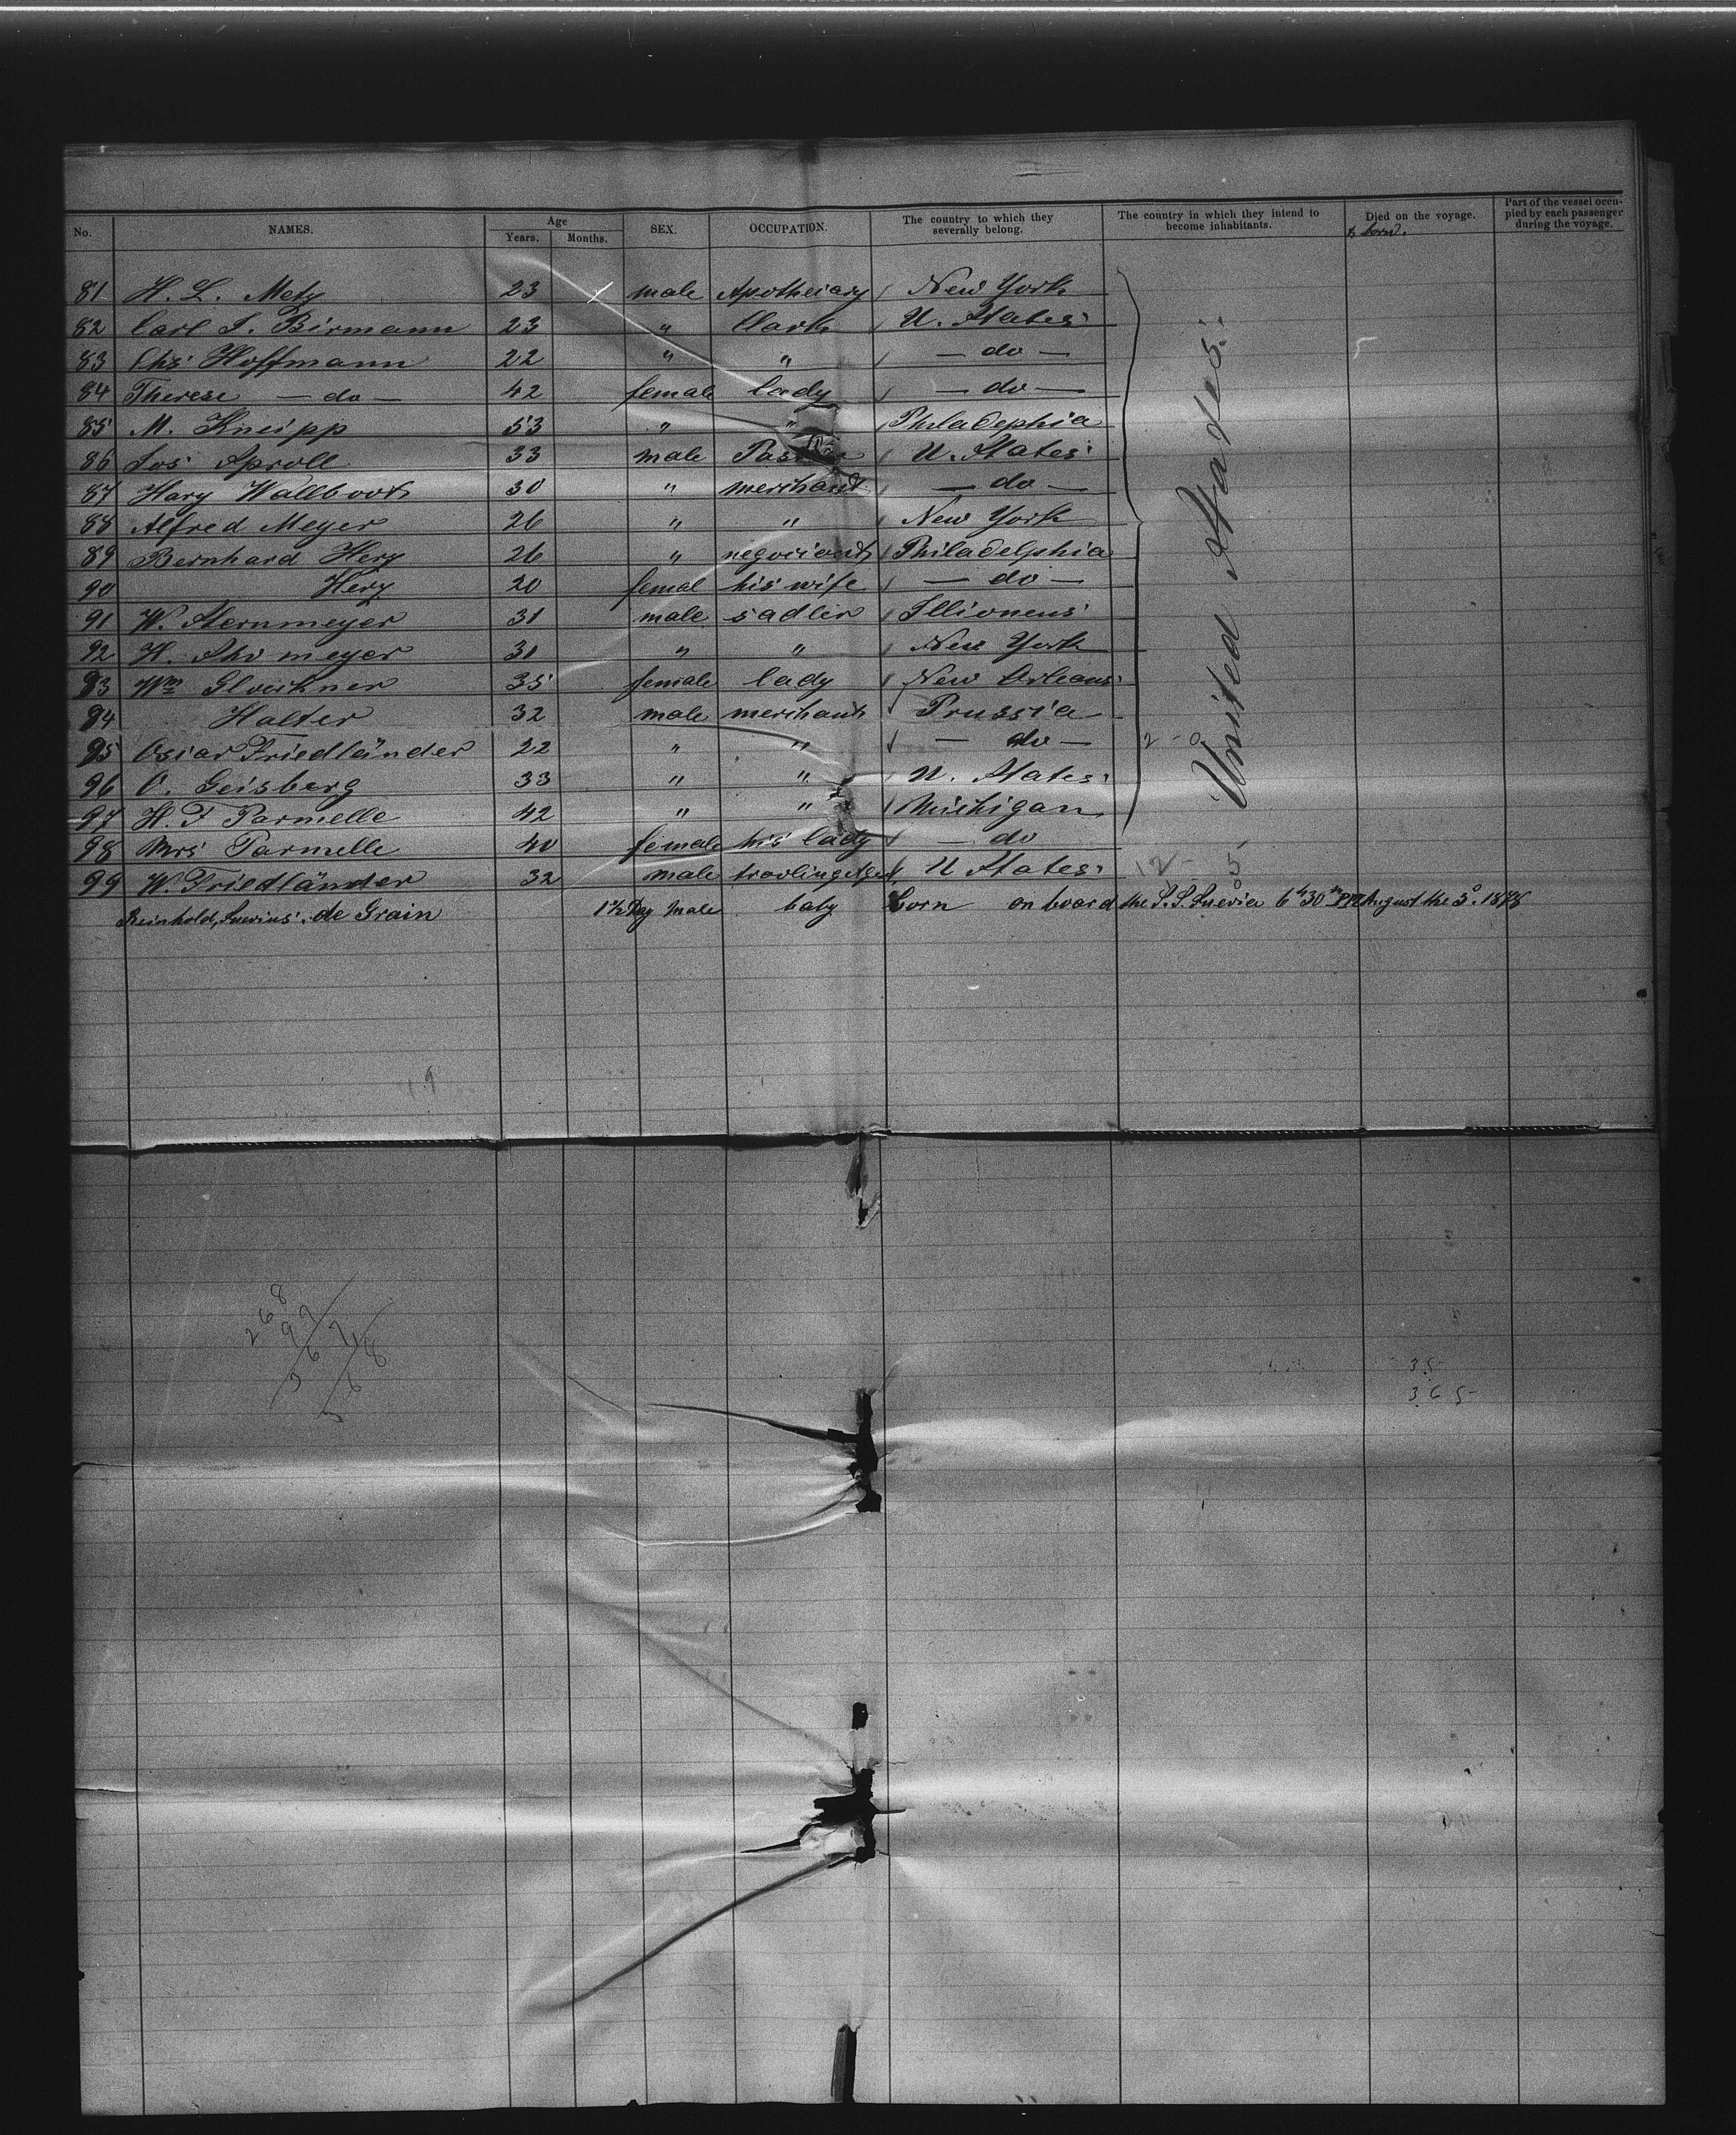 No. NAMES. Age Years. Months. SEX. OCCUPATION. The country to which they severally belong. The country in which they intend to become inhabitants. Died on the voyage. & born. Part of the vessel occupied by each passenger during the voyage.
81 H. L. Metz 23 male Apotheiary New York
82 Carl J. Birmann 23 " Clark U. States
83 Chs Hoffmann 22 " " — do —
84 Therese — do — 42 female lady — do —
85 M. Kneipp 53 " " Philadephia
86 Jos Sproll 33 male U. States
87 Hary Wallboot 30 " merchant — do —
88 Alfred Meyer 26 " " New York
89 Bernhard Herz 26 " negociant Philadelphia
90 Herz 20 femal his wife — do —
91 W. Sternmeyer 31 male sadler Illioneus
92 H. meyer 31 " " New York
93 Wm Gloeckner 35 female lady New Orleans
94 Halter 32 male merchant Prussia
95 Oscar Friedländer 22 " " — do —
96 O. Geisberg 33 " " U. States
97 H. F Parmelle 42 " " Michigan
98 Mrs Parmelle 40 female his lady — do
99 W. Friedländer 32 male U States
Reinhold, Suevius de Grain 1½ Day Male baby born on board the S. S. Suevia 6h 30m PM August the 5° 1878
United States
268
97
35
365